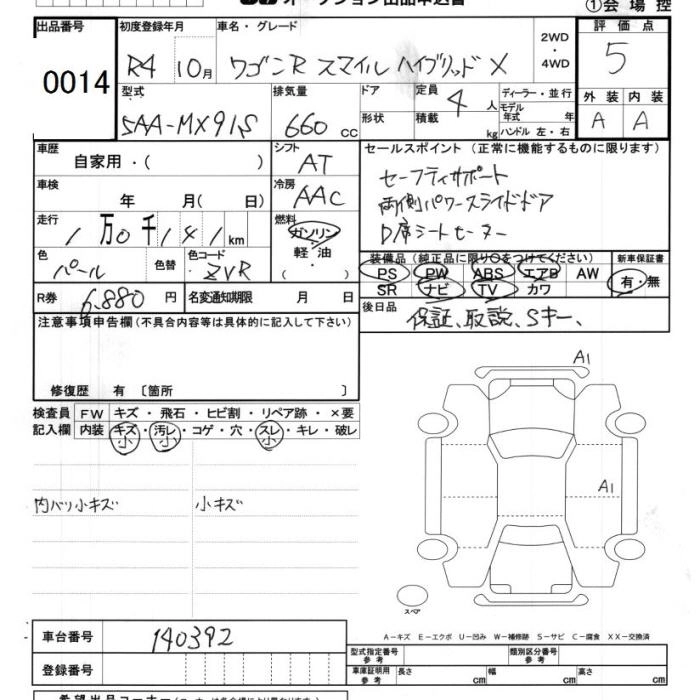 オークション出品申込書
①会場控
出品番号
0014
初度登録年月
R4 10月
車名・グレード
ワゴンR スマイル ハイブリッド X
2WD
・
4WD
評価点
5
外装 内装
A A
型式
5AA-MX91S
排気量
660 cc
ドア
形状
定員 4 人
積載 kg
ディーラー・並行
モデル
年式 年
ハンドル 左・右
車歴
自家用・( )
シフト
AT
セールスポイント (正常に機能するものに限ります)
セーフティサポート
両側パワースライドドア
D席シートヒーター
車検
年 月( 日)
冷房
AAC
走行
1万0千141km
燃料
ガソリン・
軽油
・( )
色
パール
色替
色コード
ZVR
装備品(純正品に限り○をつけてください)
PS PW ABS エアB AW
SR ナビ TV カワ
新車保証書
有・無
R券 6,880円
名変通知期限 月 日
後日品
保証、取説、Sキー、
注意事項申告欄(不具合内容等は具体的に記入して下さい)
修復歴 有 〔箇所 〕
検査員
記入欄
FW キズ・飛石・ヒビ割・リペア跡・×要
内装 キズ・汚レ・コゲ・穴・スレ・キレ・破レ
小 小 小
内バリ小キズ 小キズ
A1
A1
スペア
A-キズ E-エクボ U-凹み W-補修跡 S-サビ C-腐食 XX-交換済
車台番号
140392
登録番号
型式指定番号
参考
類別区分番号
参考
車庫証明用
参考
長さ cm 幅 cm 高さ cm